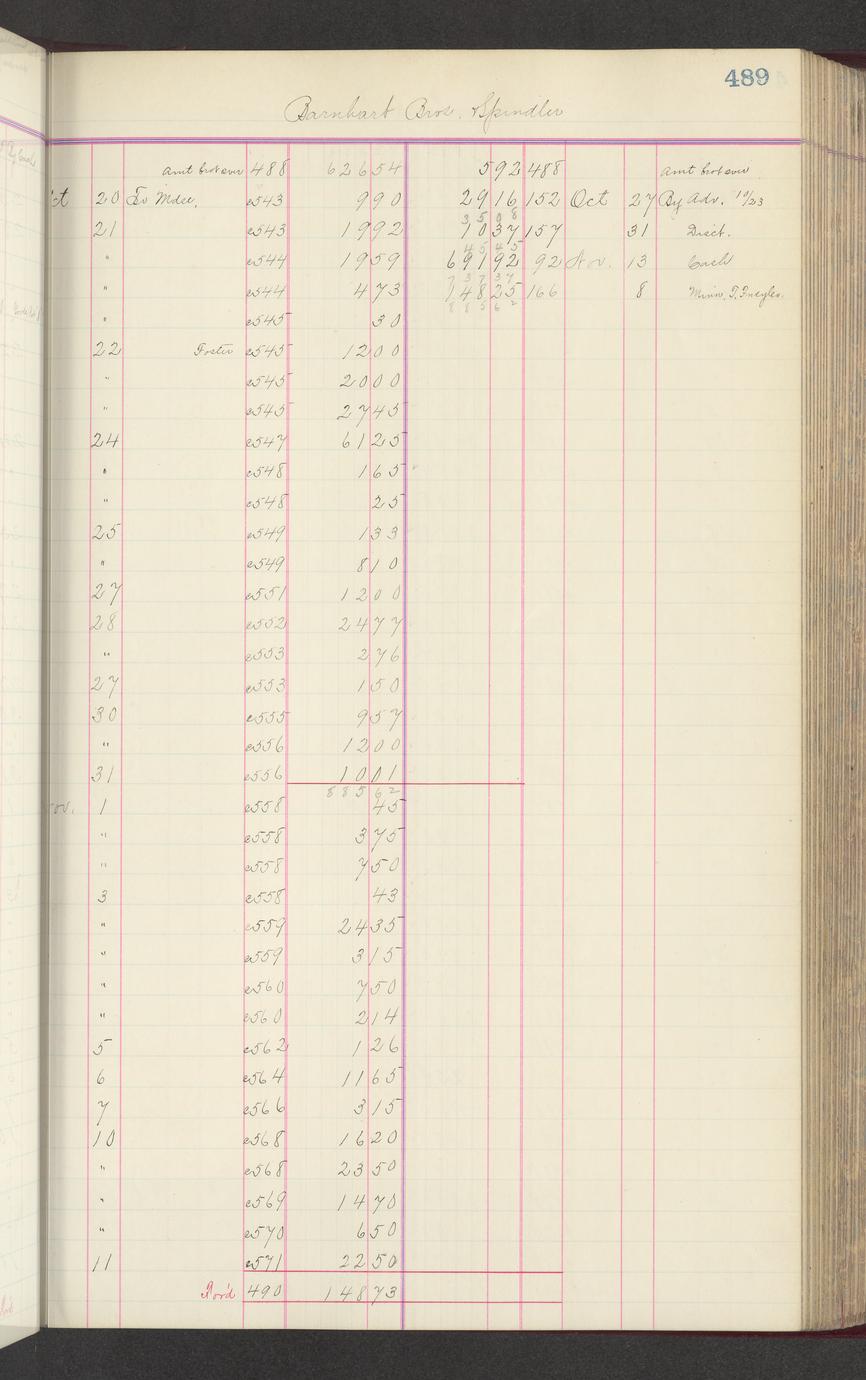 489
Barnhart Bros. & Spindler
Amt brot over 488 626 54 5 92 488 Amt brot over
20 To Mdse. c543 9 90 29 16 152 Oct 27 By Adv. 10/23
35 08
21 c543 19 92 10 37 157 31 Disct.
45 45
" c544 19 59 691 92 92 Nov. 13 Cash
737 37
" c544 4 73 148 25 166 8 Minn. T.
885 62
" c545 30
22 Foster c545 12 00
" c545 20 00
" c545 27 45
24 c547 61 25
" c548 1 65
" c548 25
25 c549 1 33
" c549 8 10
27 c551 12 00
28 c552 24 77
" c553 2 76
27 c553 1 50
30 c555 9 57
" c556 12 00
31 c556 10 01
885 62
1 c558 45
" c558 3 75
" c558 7 50
3 c558 43
" c559 24 35
" c559 3 15
" c560 7 50
" c560 2 14
5 c562 1 26
6 c564 11 65
7 c566 3 15
10 c568 16 20
" c568 23 50
" c569 14 70
" c570 6 50
11 c571 22 50
For'd 490 148 73